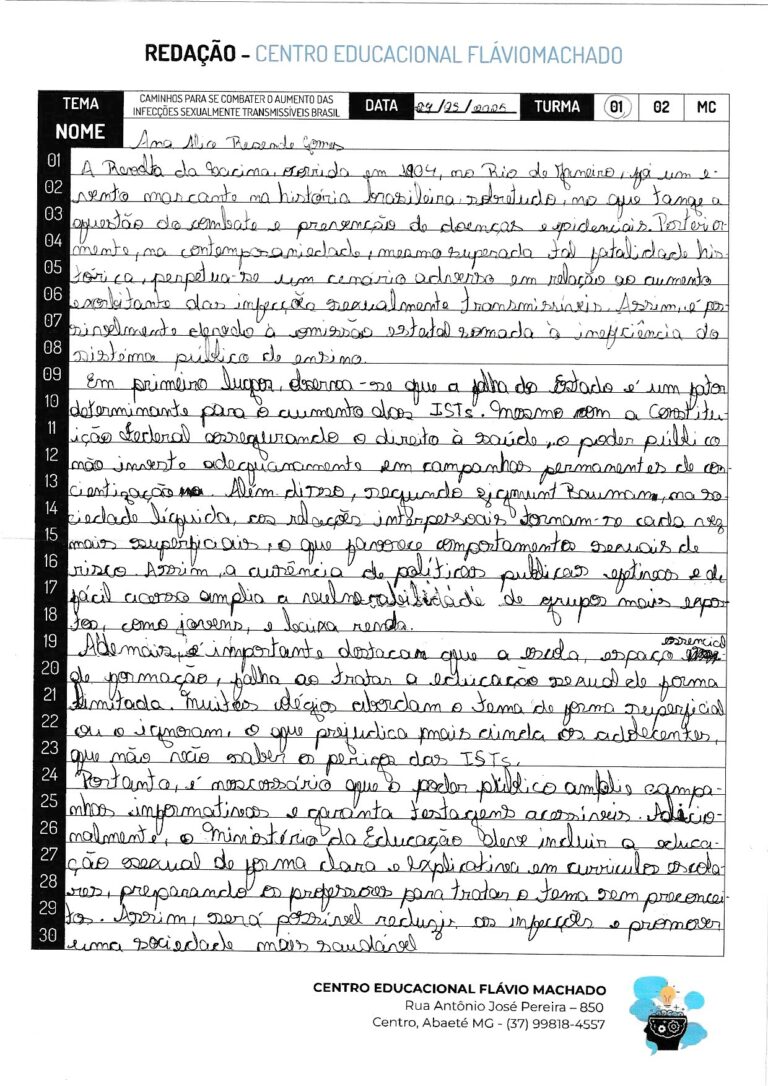 REDAÇÃO - CENTRO EDUCACIONAL FLÁVIOMACHADO
TEMA
CAMINHOS PARA SE COMBATER O AUMENTO DAS
INFECÇÕES SEXUALMENTE TRANSMISSÍVEIS BRASIL
DATA
/25/2025
TURMA
01
02
MC
NOME
Ana Alice Resende Gomes
01 A Revolta da Vacina, ocorrida em 1904, no Rio de Janeiro, foi um e-
02 vento marcante na história brasileira, sobretudo, no que tange a
03 questão do combate e prevenção de doenças epidemiais. Posterior-
04 mente, na contemporaniedade, mesmo superada tal fatalidade his-
05 tórica, perpetua-se um cenário adverso em relação ao aumento
06 exorbitante das infecção sexualmente transmissíveis. Assim, é pos-
07 sivelmente devido à omissão estatal somada à ineficiência do
08 sistema público de ensino.
09 Em primeiro lugar, observa-se que a falha do Estado é um fator
10 determinante para o aumento das ISTs. Mesmo com a Constitu-
11 ição Federal assegurando o direito à saúde, o poder público
12 não investe adequanamente em campanhas permanentes de con-
13 cientização. Além disso, segundo Zigmunt Bauman, na so-
14 ciedade líquida, as relações interpessoais tornam-se cada vez
15 mais superficiais, o que favorece comportamentos sexuais de
16 risco. Assim, a ausência de políticas publicas efetivas e de
17 fácil acesso amplia a vulnerabilidade de grupos mais expos-
18 tos, como jovens, e baixa renda.
19 Ademais, é importante destacar que a escola, espaço essencial
20 de formação, falha ao tratar a educação sexual de forma
21 limitada. Muitos colégios abordam o tema de forma superficial
22 ou o ignoram, o que prejudica mais ainda os adolecentes,
23 que não vão saber os perigos das ISTs.
24 Portanto, é necessário que o poder público amplie campa-
25 nhas informativas e garanta testagens acessíveis. Adicio-
26 nalmente, o Ministério da Educação deve incluir a educa-
27 ção sexual de forma clara e explicativa em curriculos escola-
28 res, preparando os professores para tratar o tema sem preconcei-
29 tos. Assim, será possível reduzir as infecções e promover
30 uma sociedade mais saudável
CENTRO EDUCACIONAL FLÁVIO MACHADO
Rua Antônio José Pereira – 850
Centro, Abaeté MG - (37) 99818-4557